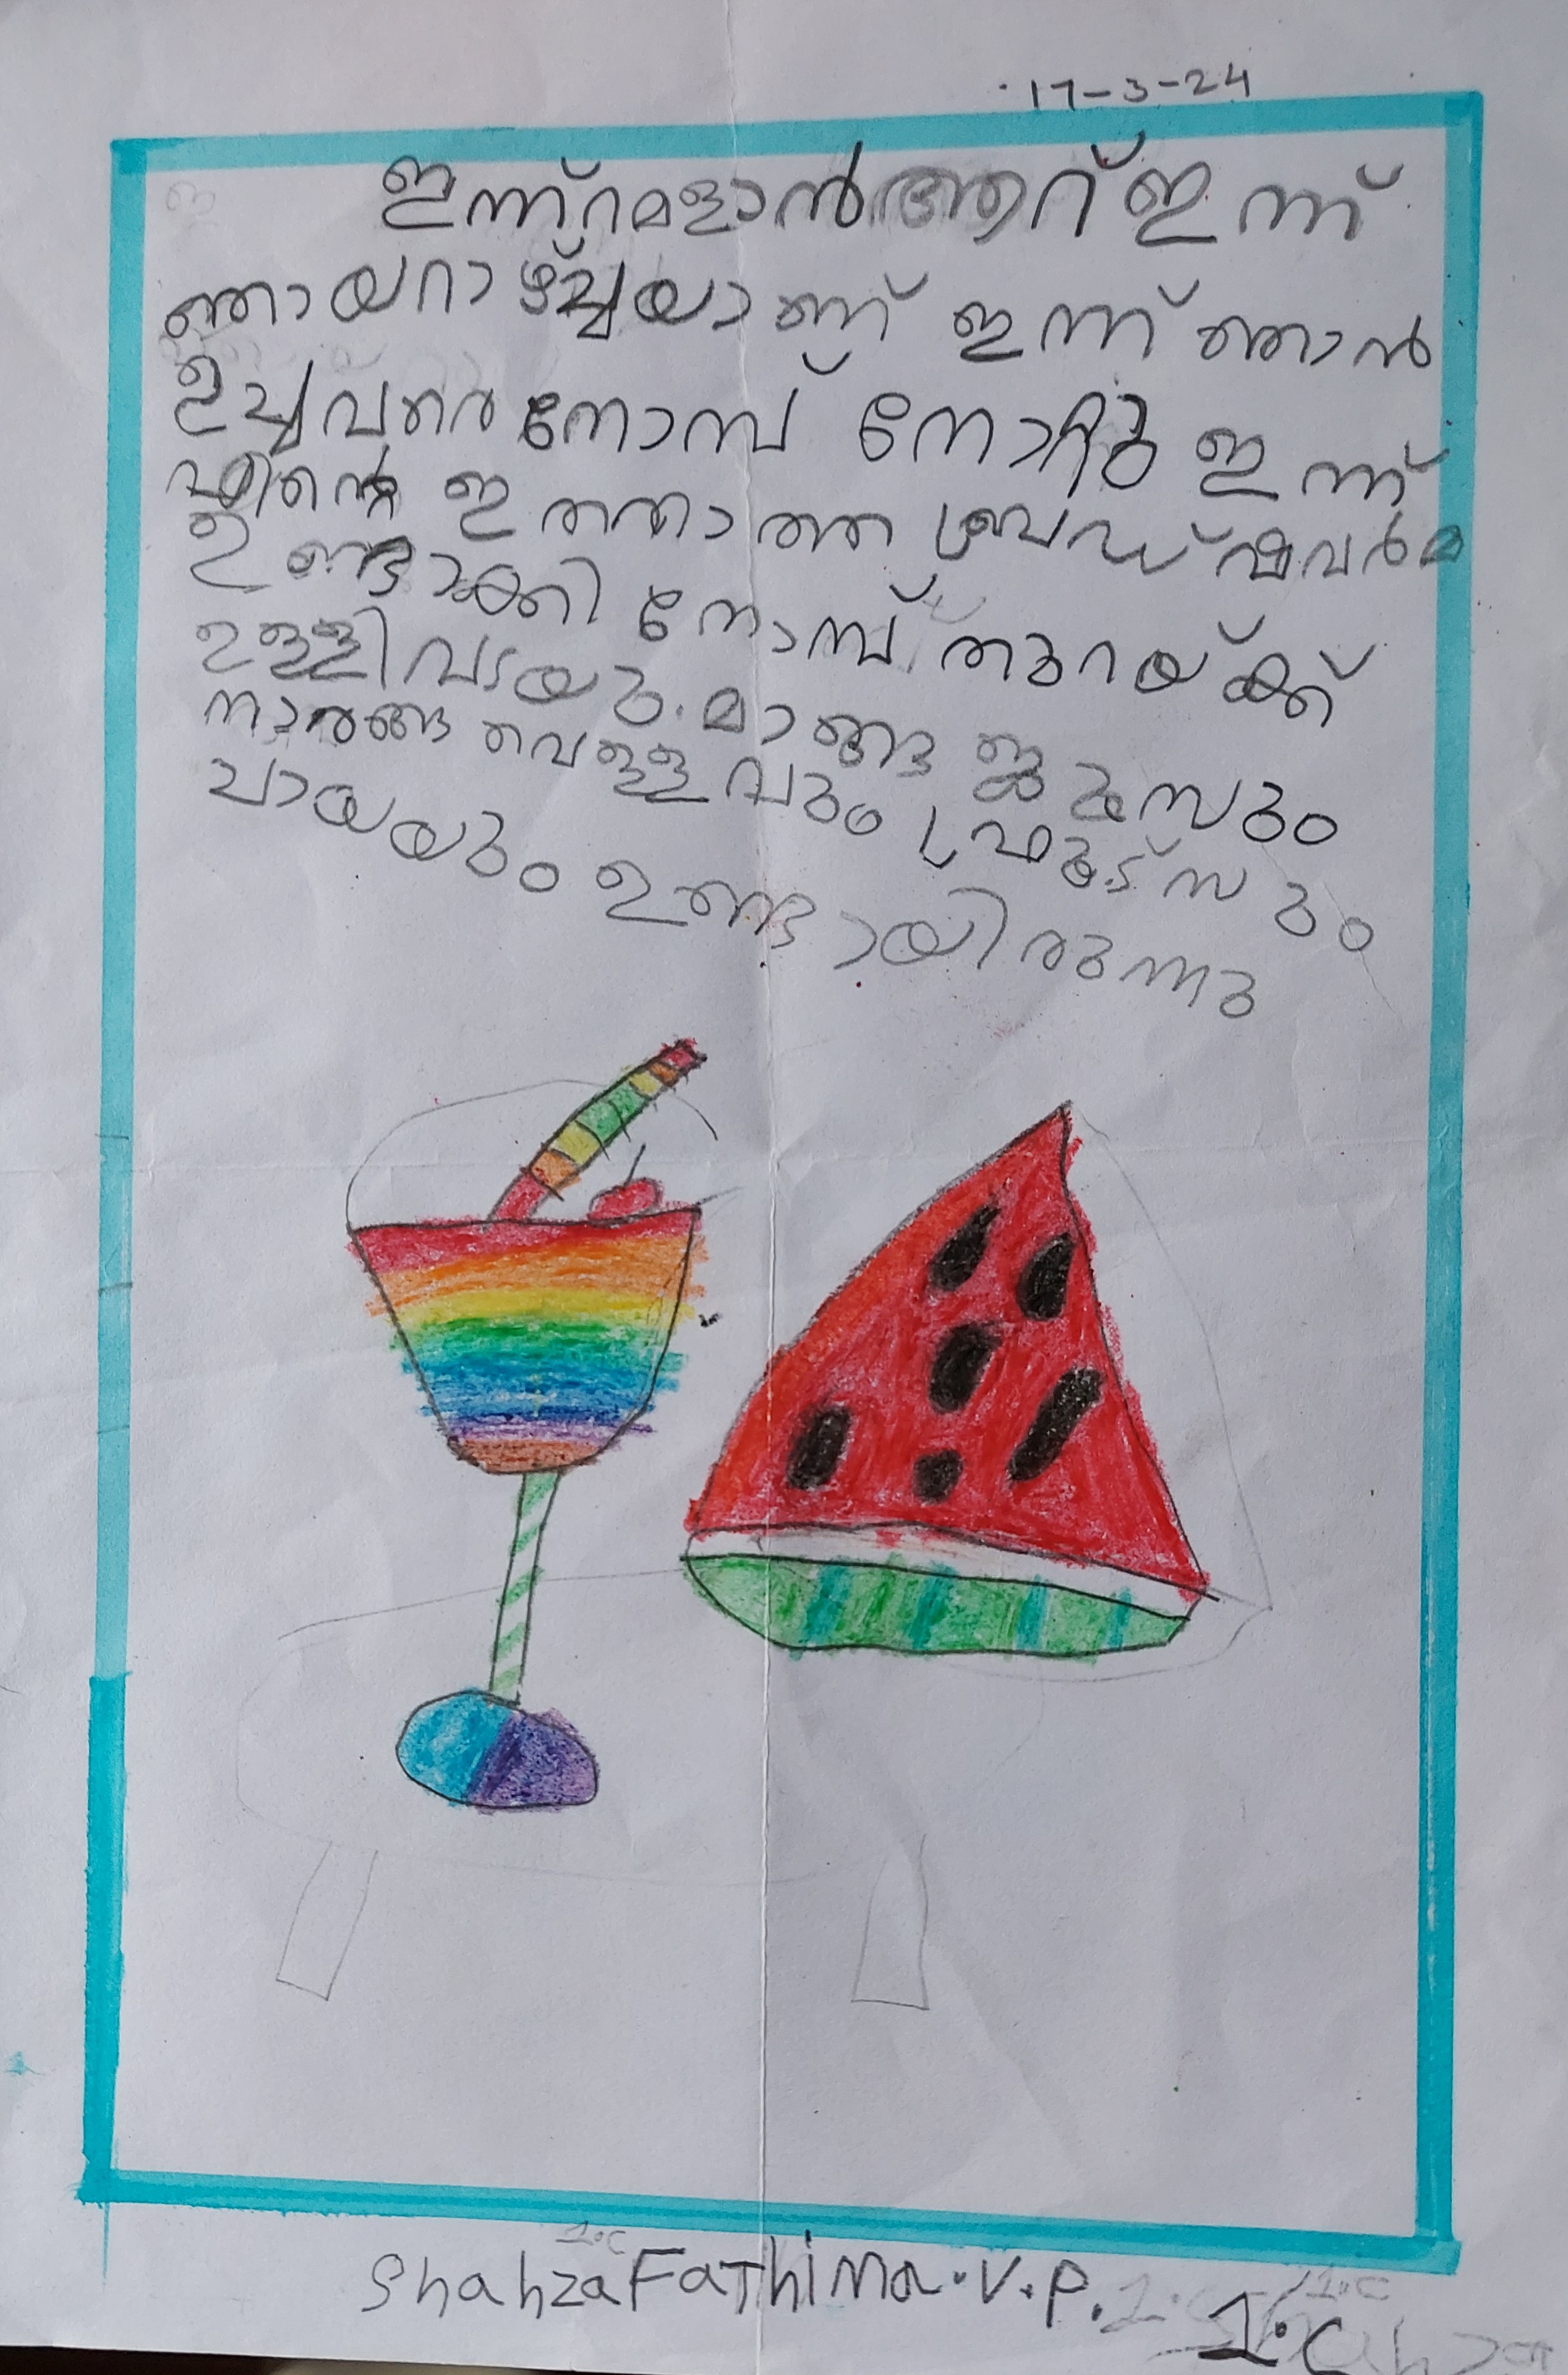 17-3-24
ഇന്ന് റമളാൻ ആറ് ഇന്ന്
ഞായറാഴ്ച്ചയാണ് ഇന്ന് ഞാൻ
ഉച്ചവരെ നോമ്പ് നോറ്റു ഇന്ന്
എന്റെ ഇത്താത്ത ബ്രഡ് ഷവർമ
ഉണ്ടാക്കി നോമ്പ് തുറയ്ക്ക്
ഉള്ളിവടയു. മാങ്ങ ജൂസും
നാരങ്ങ വെള്ളവും ഫ്രൂട്സും
ചായയും ഉണ്ടായിരുന്നു
Shahza Fathima. V. P. 1.C